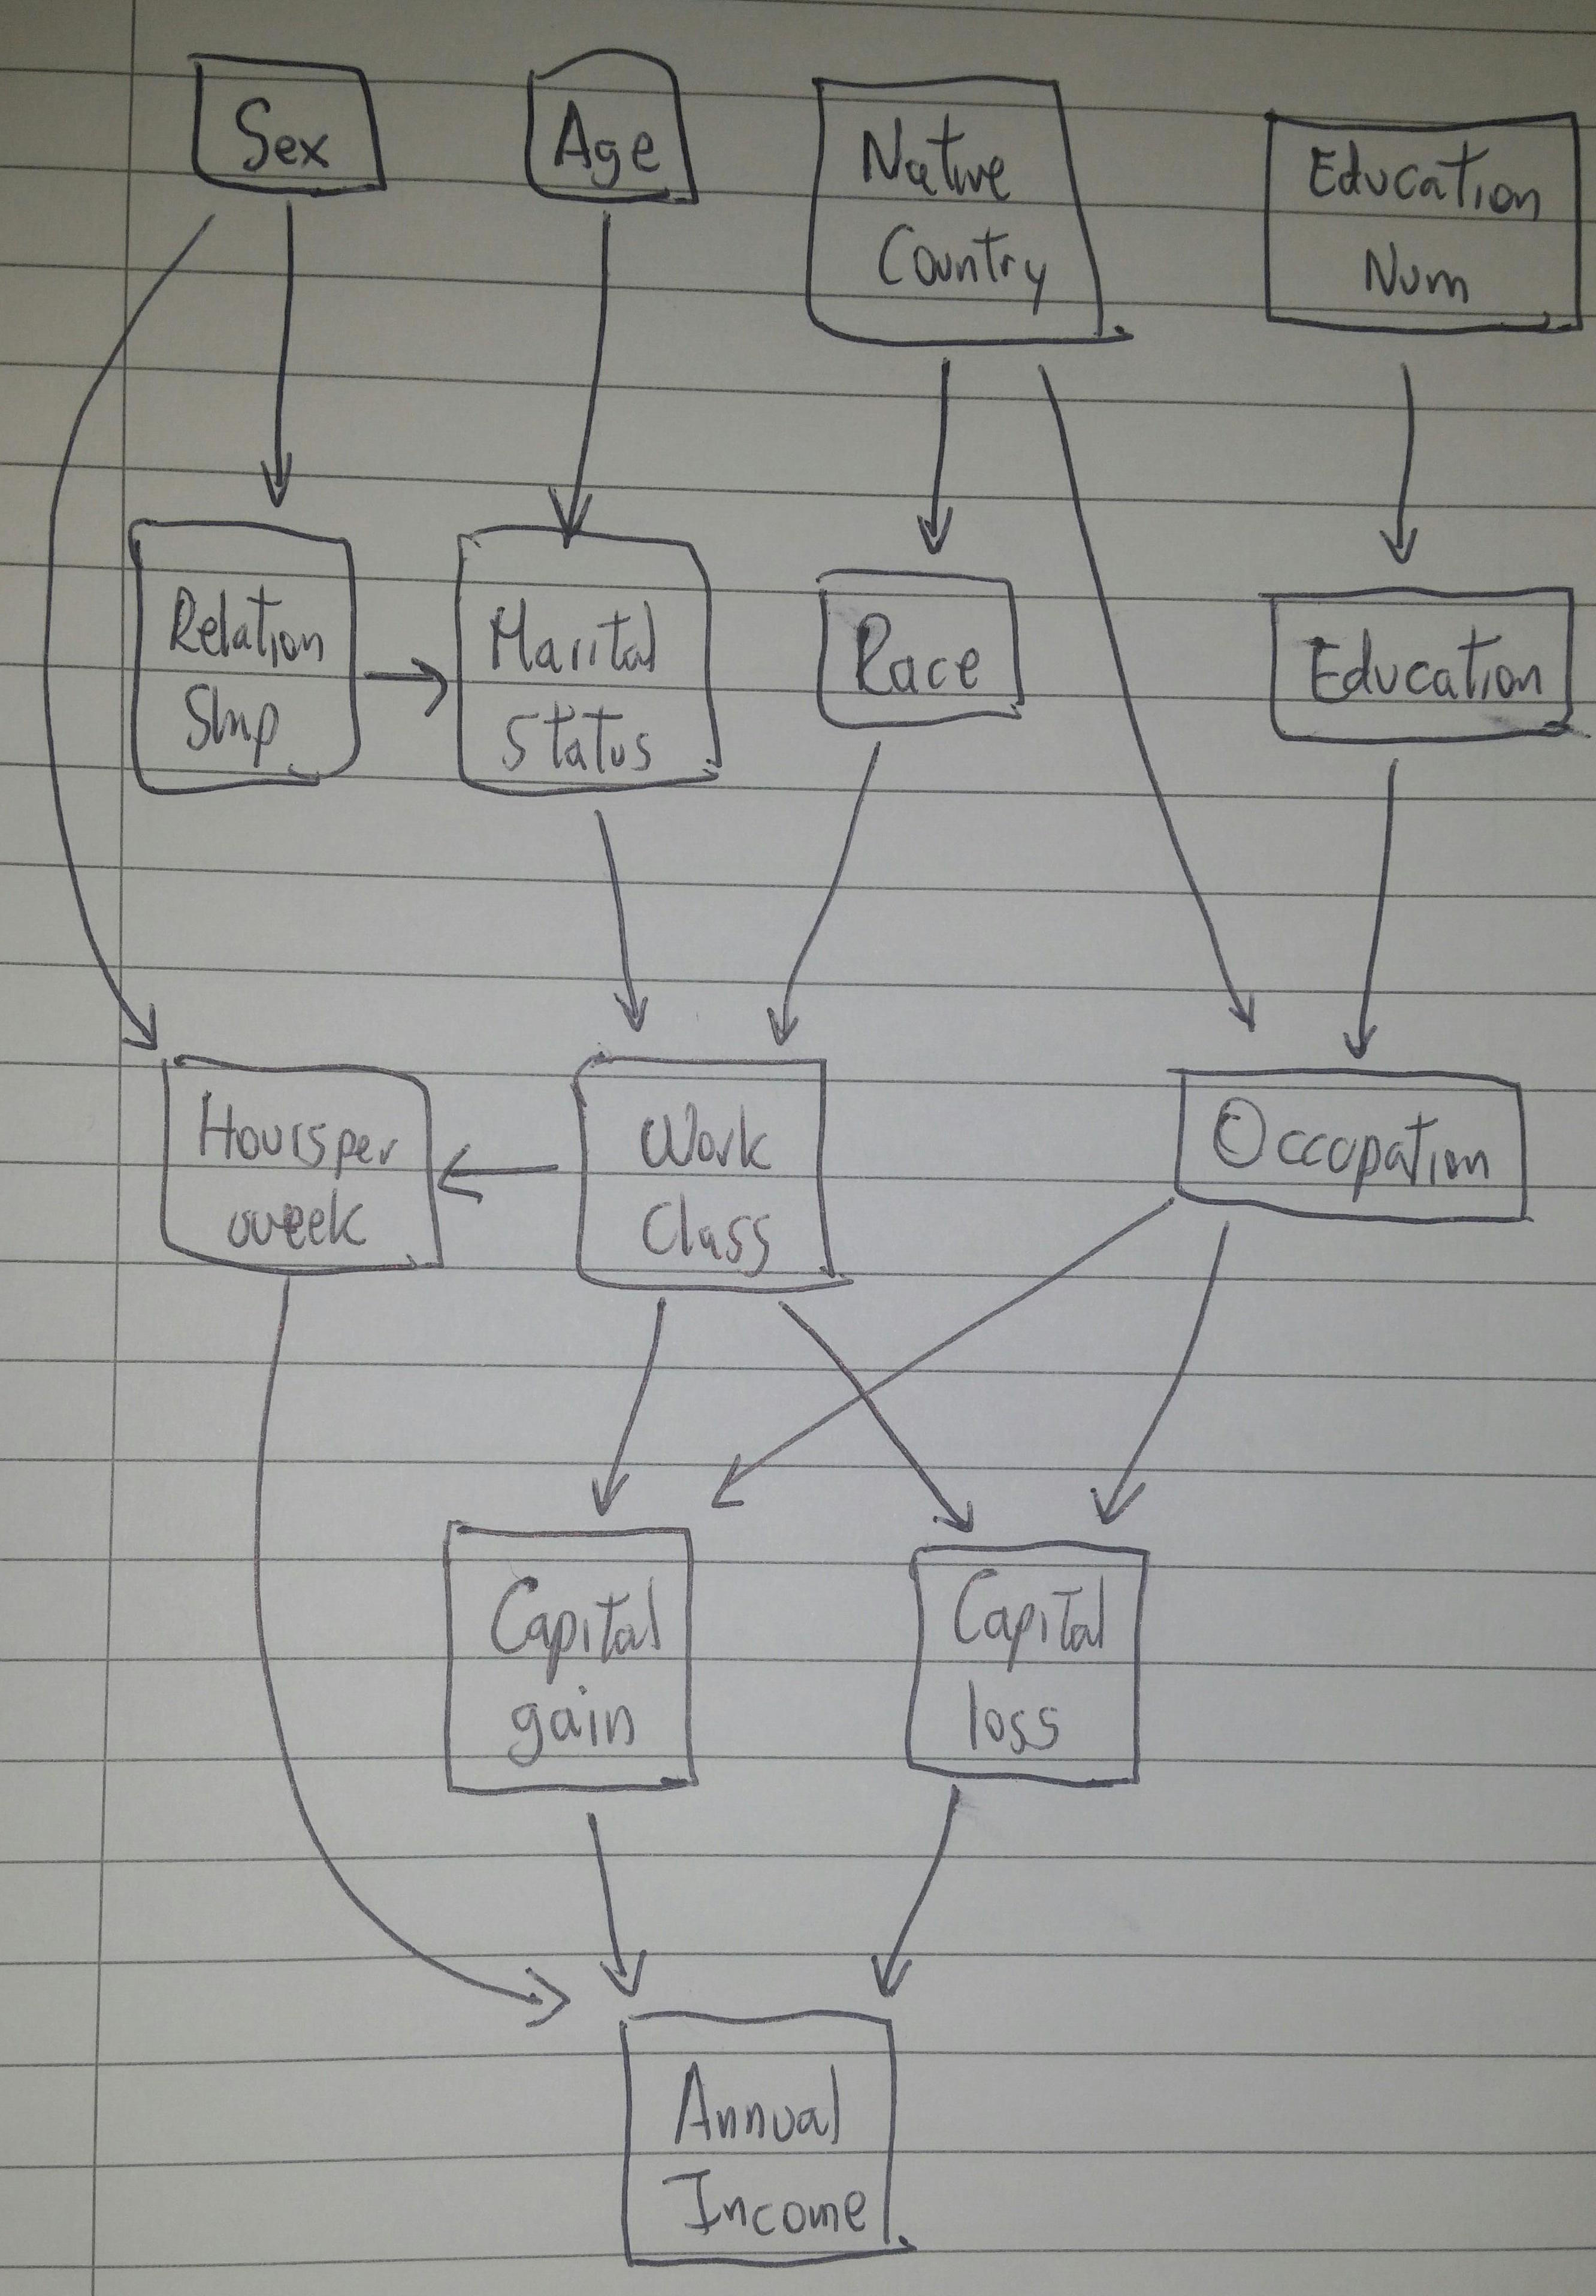 Sex
Age
Native
Country
Education
Num
Relation
Ship
Marital
Status
Race
Education
Hoursper
week
Work
Class
Occupation
Capital
gain
Capital
loss
Annual
Income